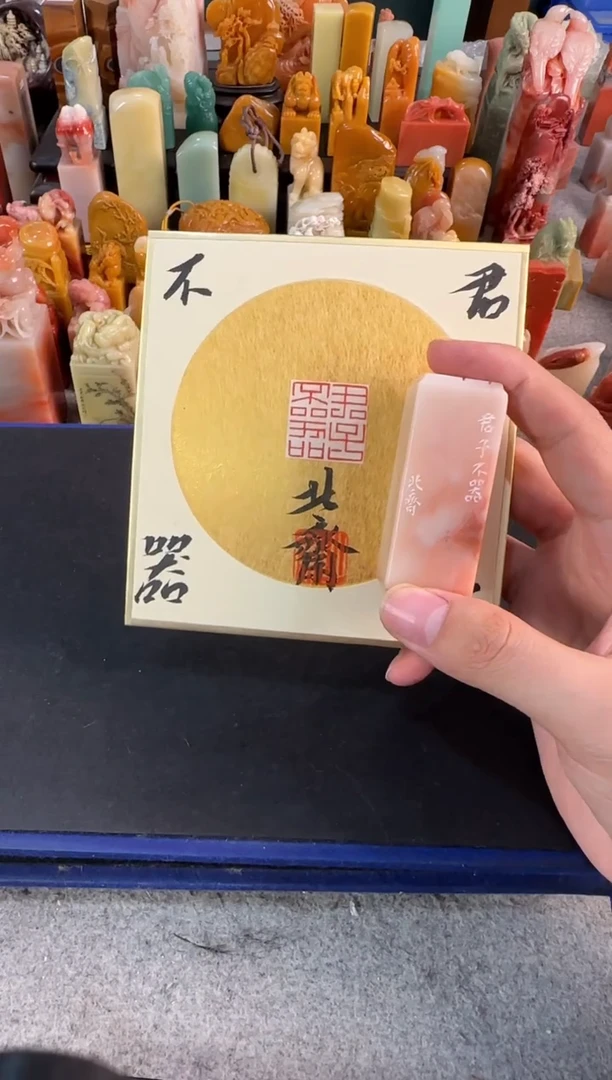 君
不器
君子不器
北斋
君子不器
北斋